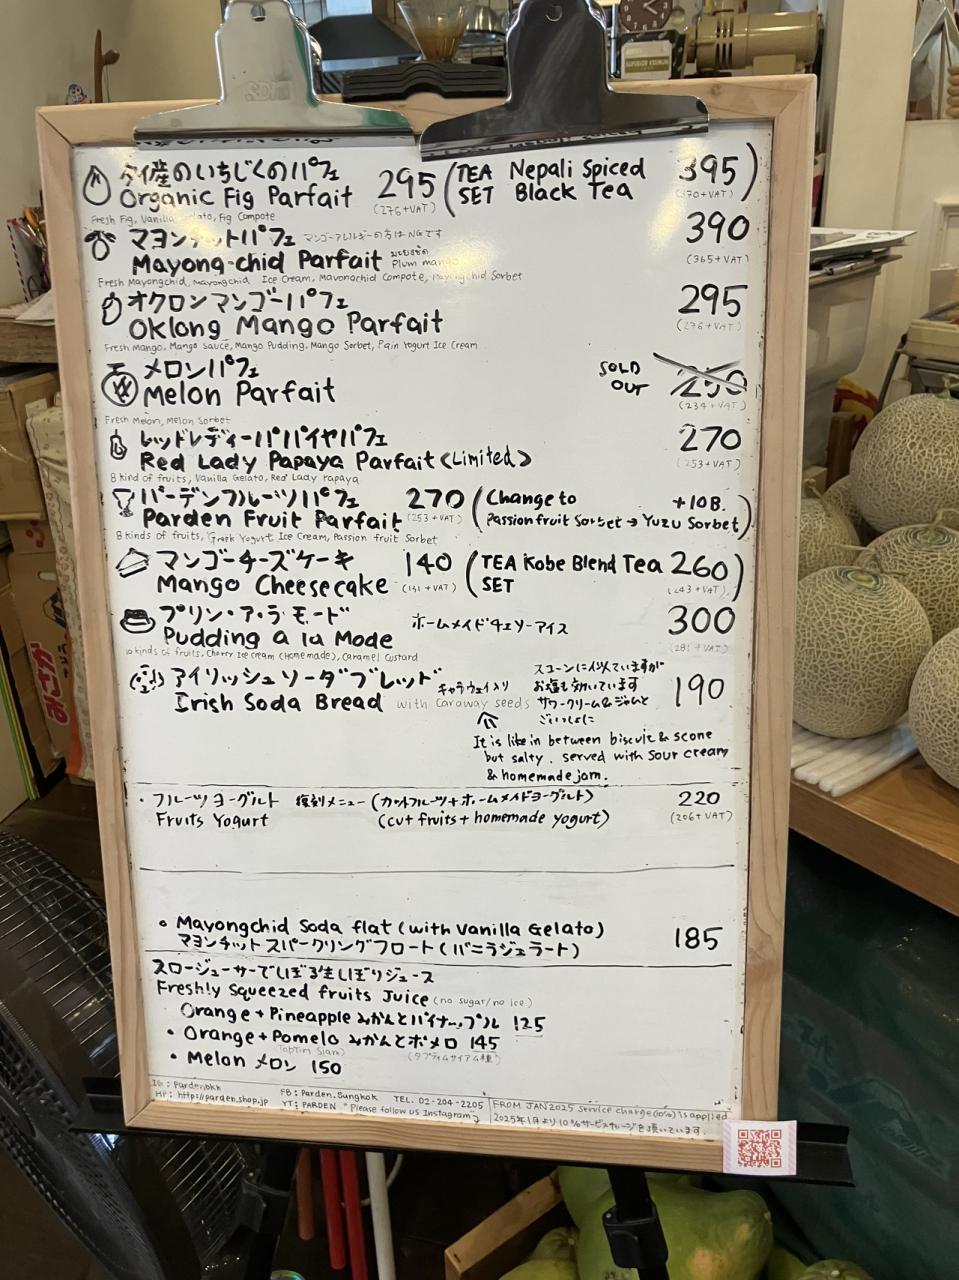 タイ産のいちじくのパフェ
Organic Fig Parfait 295 (TEA SET Nepali Spiced Black Tea 395)
(276+VAT) (370+VAT)
Fresh Fig, Vanilla Gelato, Fig Compote
マヨンチットパフェ マンゴーアレルギーの方はNGです 390
Mayong-chid Parfait มะยงชิด Plum mango (365+VAT)
Fresh Mayongchid, Mayongchid Ice Cream, Mayongchid Compote, Mayongchid Sorbet
オクロンマンゴーパフェ 295
Oklong Mango Parfait (276+VAT)
Fresh Mango, Mango Sauce, Mango Pudding, Mango Sorbet, Pain Yogurt Ice Cream
メロンパフェ SOLD OUT 250
Melon Parfait (234+VAT)
Fresh Melon, Melon Sorbet
レッドレディーパパイヤパフェ 270
Red Lady Papaya Parfait <Limited> (253+VAT)
8 kind of fruits, Vanilla Gelato, Red Lady Papaya
パーデンフルーツパフェ 270 (Change to +10B.
Parden Fruit Parfait (253+VAT) Passion fruit Sorbet → Yuzu Sorbet)
8 kinds of fruits, Greek Yogurt Ice Cream, Passion fruit Sorbet
マンゴーチーズケーキ 140 (TEA SET Kobe Blend Tea 260)
Mango Cheesecake (131+VAT) (243+VAT)
プリン・ア・ラ・モード ホームメイドチェリーアイス 300
Pudding a la Mode (281+VAT)
10 kinds of fruits, Cherry Ice cream (Homemade), Caramel Custard
アイリッシュソーダブレッド キャラウェイ入り
Irish Soda Bread with caraway seeds 190
スコーンに似ていますが
お塩も効いています
サワークリーム&ジャムと
ごいっしょに
It is like in between biscuit & scone
but salty. served with sour cream
& homemade jam.
・フルーツヨーグルト 復刻メニュー (カットフルーツ+ホームメイドヨーグルト) 220
Fruits Yogurt (cut fruits + homemade yogurt) (206+VAT)
• Mayongchid Soda flat (with Vanilla Gelato) 185
マヨンチットスパークリングフロート (バニラジェラート)
スロージューサーでしぼる生しぼりジュース
Freshly Squeezed fruits Juice (no sugar/no ice)
Orange + Pineapple みかんとパイナップル 125
• Orange + Pomelo みかんとポメロ 145
(TabTim Siam) (タプティムサイアム種)
• Melon メロン 150
IG: Parden.bkk FB: Parden.Bungkok TEL. 02-204-2205 FROM JAN 2025 Service charge (10%) is applied
HP: http://parden.shop.jp YT: PARDEN "Please follow us Instagram" 2025年1月より10%サービスチャージを頂いています。